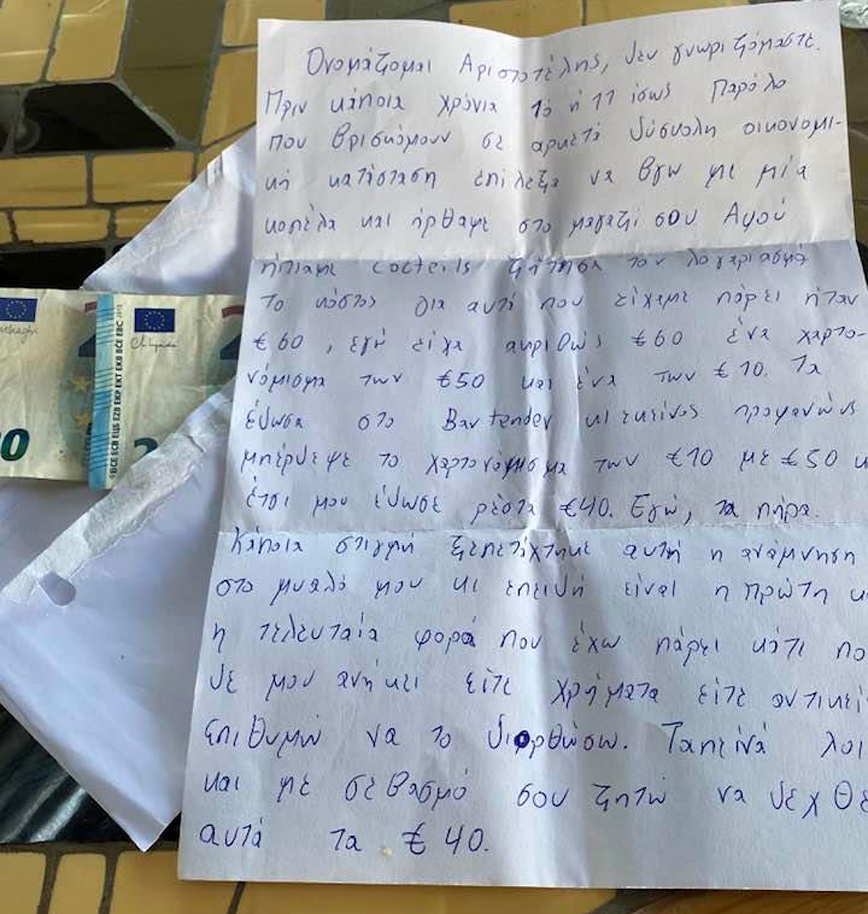 Ονομάζομαι Αριστοτέλης, δεν γνωριζόμαστε.
Πριν κάποια χρόνια 10 ή 11 ίσως παρόλο
που βρισκόμουν σε αρκετά δύσκολη οικονομι-
κή κατάσταση επίλεξα να βγω με μία
κοπέλα και ήρθαμε στο μαγαζί σου. Αφού
ήπιαμε cocteils ζήτησα τον λογαριασμό
το κόστος για αυτά που είχαμε πάρει ήταν
€60, εγώ είχα ακριβώς €60 ένα χαρτο-
νόμισμα των €50 και ένα των €10. Τα
έδωσα στο Bartender κι εκείνος προφανώς
μπέρδεψε το χαρτονόμισμα των €10 με €50 κ
έτσι μου έδωσε ρέστα €40. Εγώ, τα πήρα.
Κάποια στιγμή ξεπετάχτηκε αυτή η ανάμνηση
στο μυαλό μου κι επειδή είναι η πρώτη κ
η τελευταία φορά που έχω πάρει κάτι πο
δε μου ανήκει είτε χρήματα είτε αντικεί
επιθυμώ να το διορθώσω. Ταπεινά λοι
και με σεβασμό σου ζητώ να δεχθε
αυτά τα €40.
BCE ECB ЕЦБ EZB EKP EKT EKB BĊE EBC